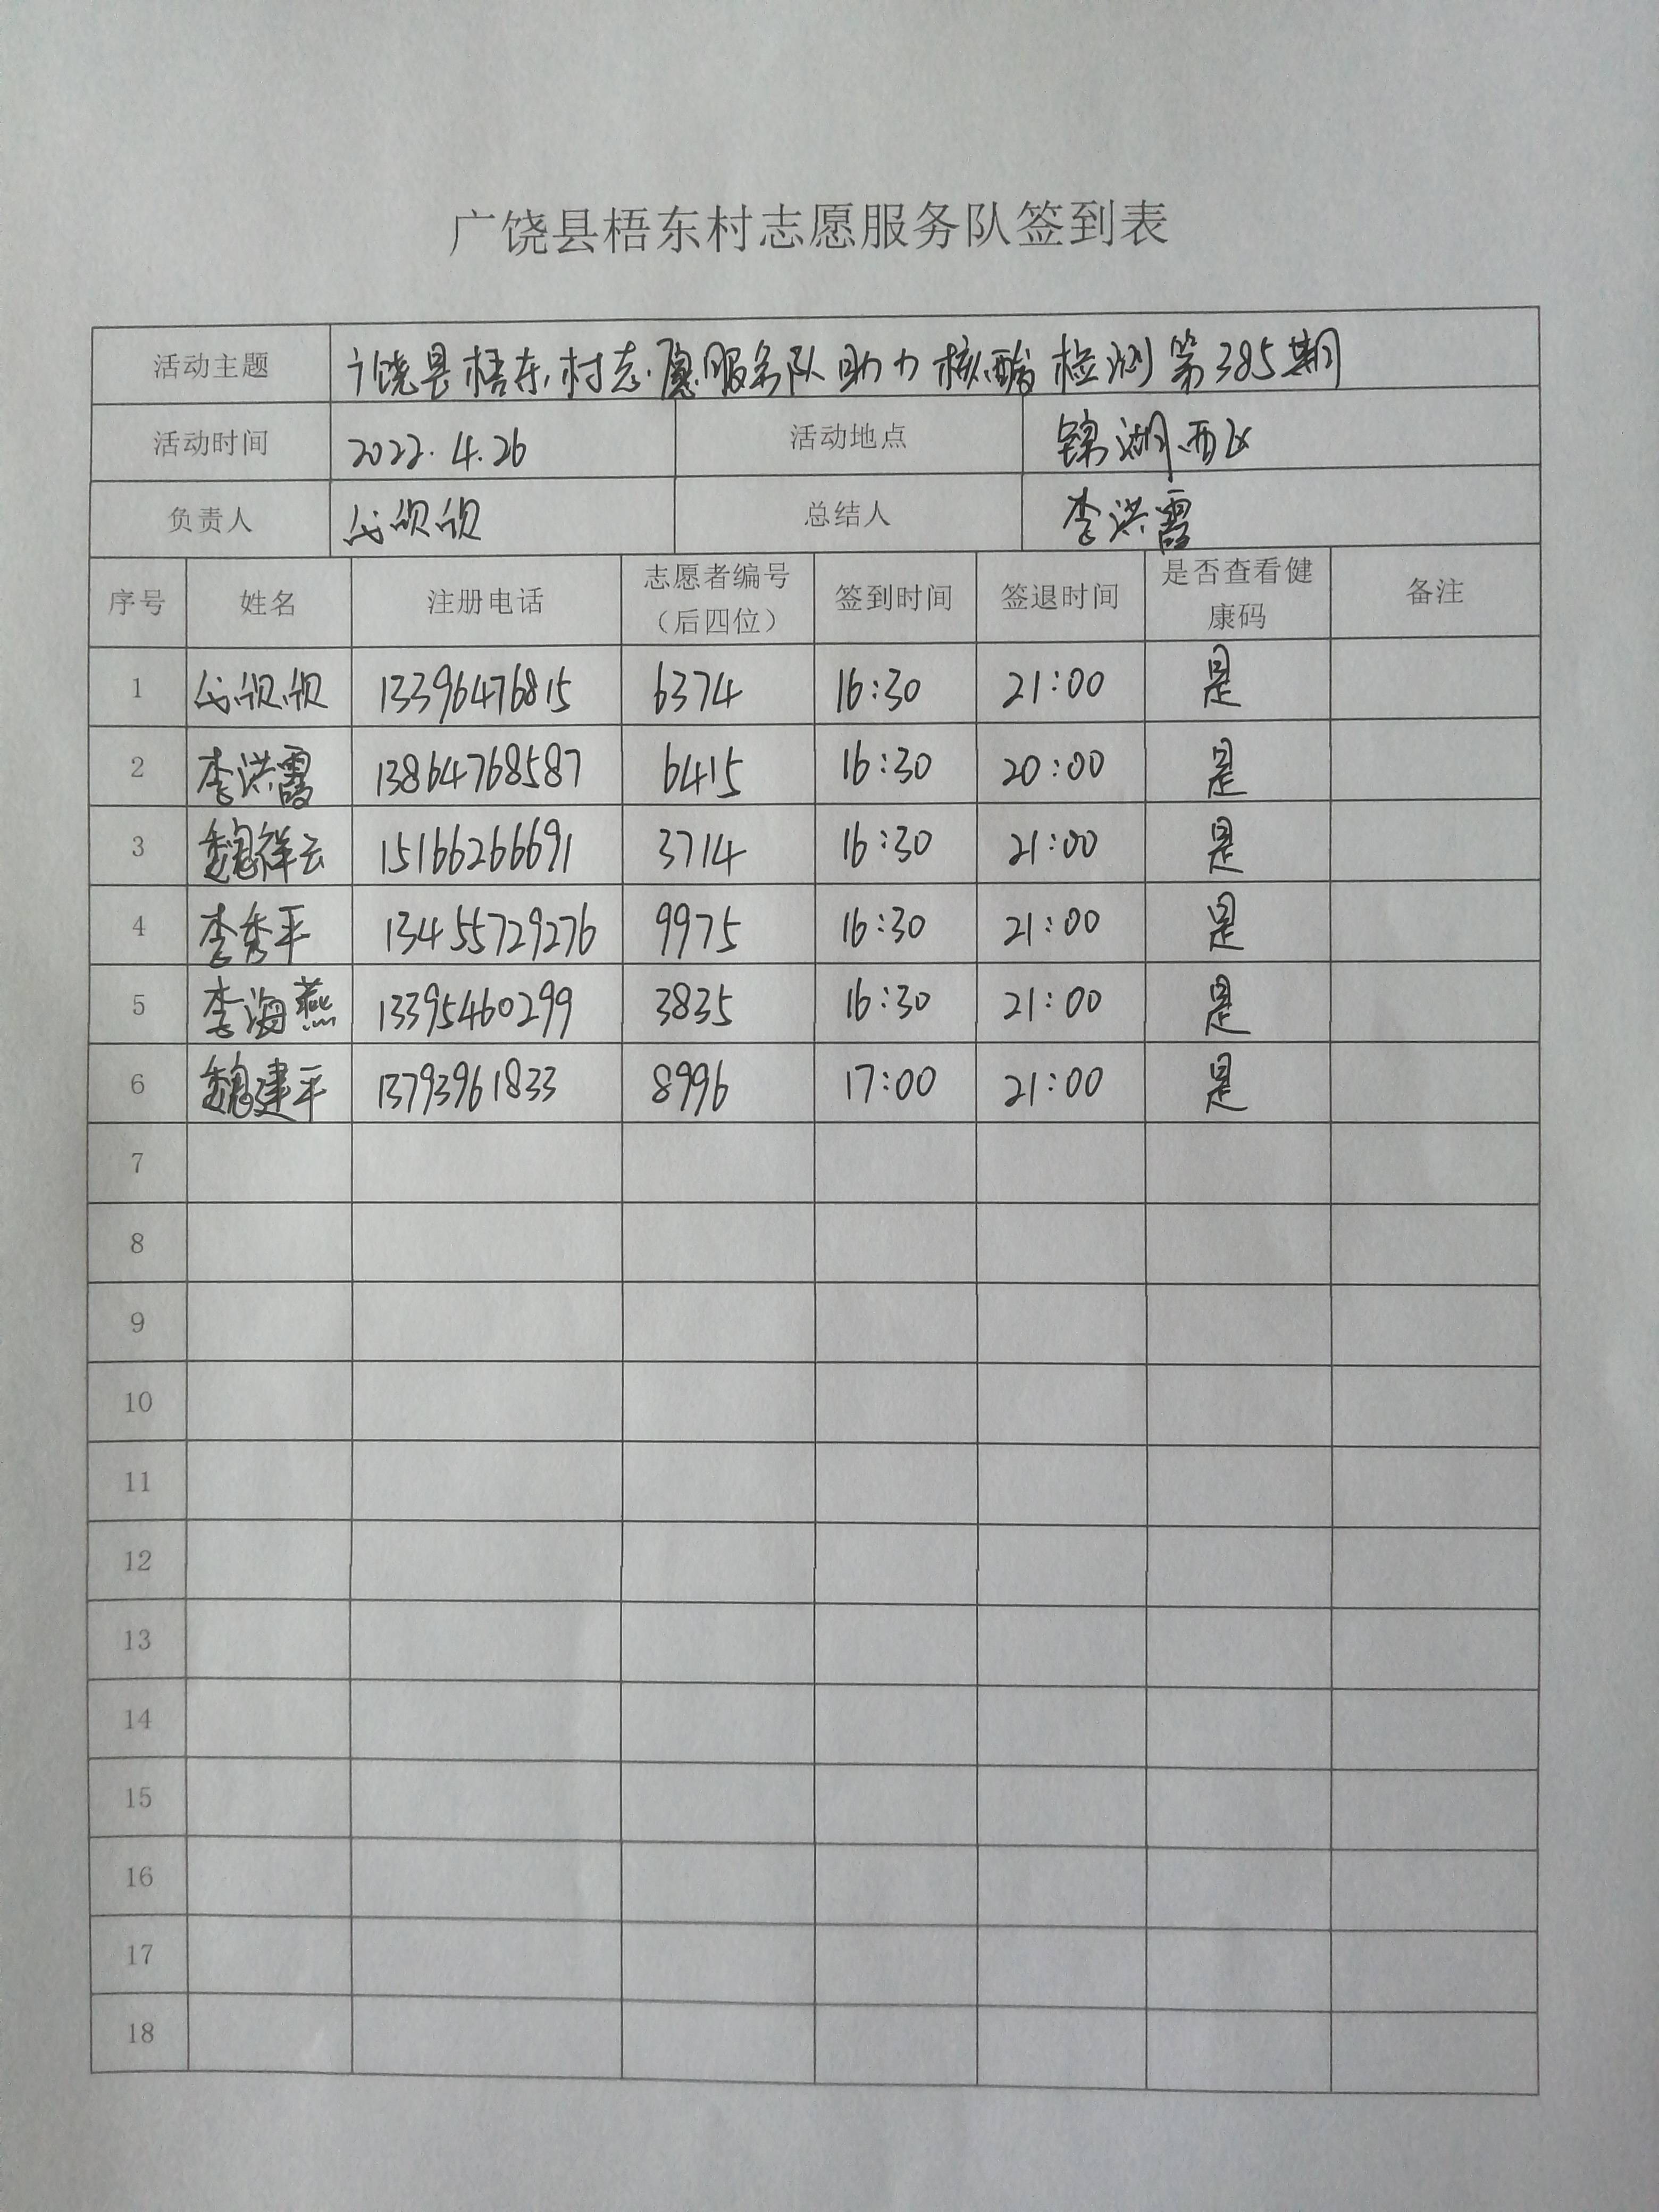 广饶县梧东村志愿服务队签到表
活动主题 广饶县梧东村志愿服务队助力核酸检测第385期
活动时间 2022.4.26 活动地点 锦湖西区
负责人 欣欣 总结人 李洪霞
序号 姓名 注册电话 志愿者编号（后四位） 签到时间 签退时间 是否查看健康码 备注
1 欣欣 13396476815 6374 16:30 21:00 是
2 李洪霞 13864768587 6415 16:30 20:00 是
3 魏祥云 15166266691 3714 16:30 21:00 是
4 李秀平 13455729276 9975 16:30 21:00 是
5 李海燕 13395460299 3835 16:30 21:00 是
6 魏建平 13793961833 8996 17:00 21:00 是
7
8
9
10
11
12
13
14
15
16
17
18